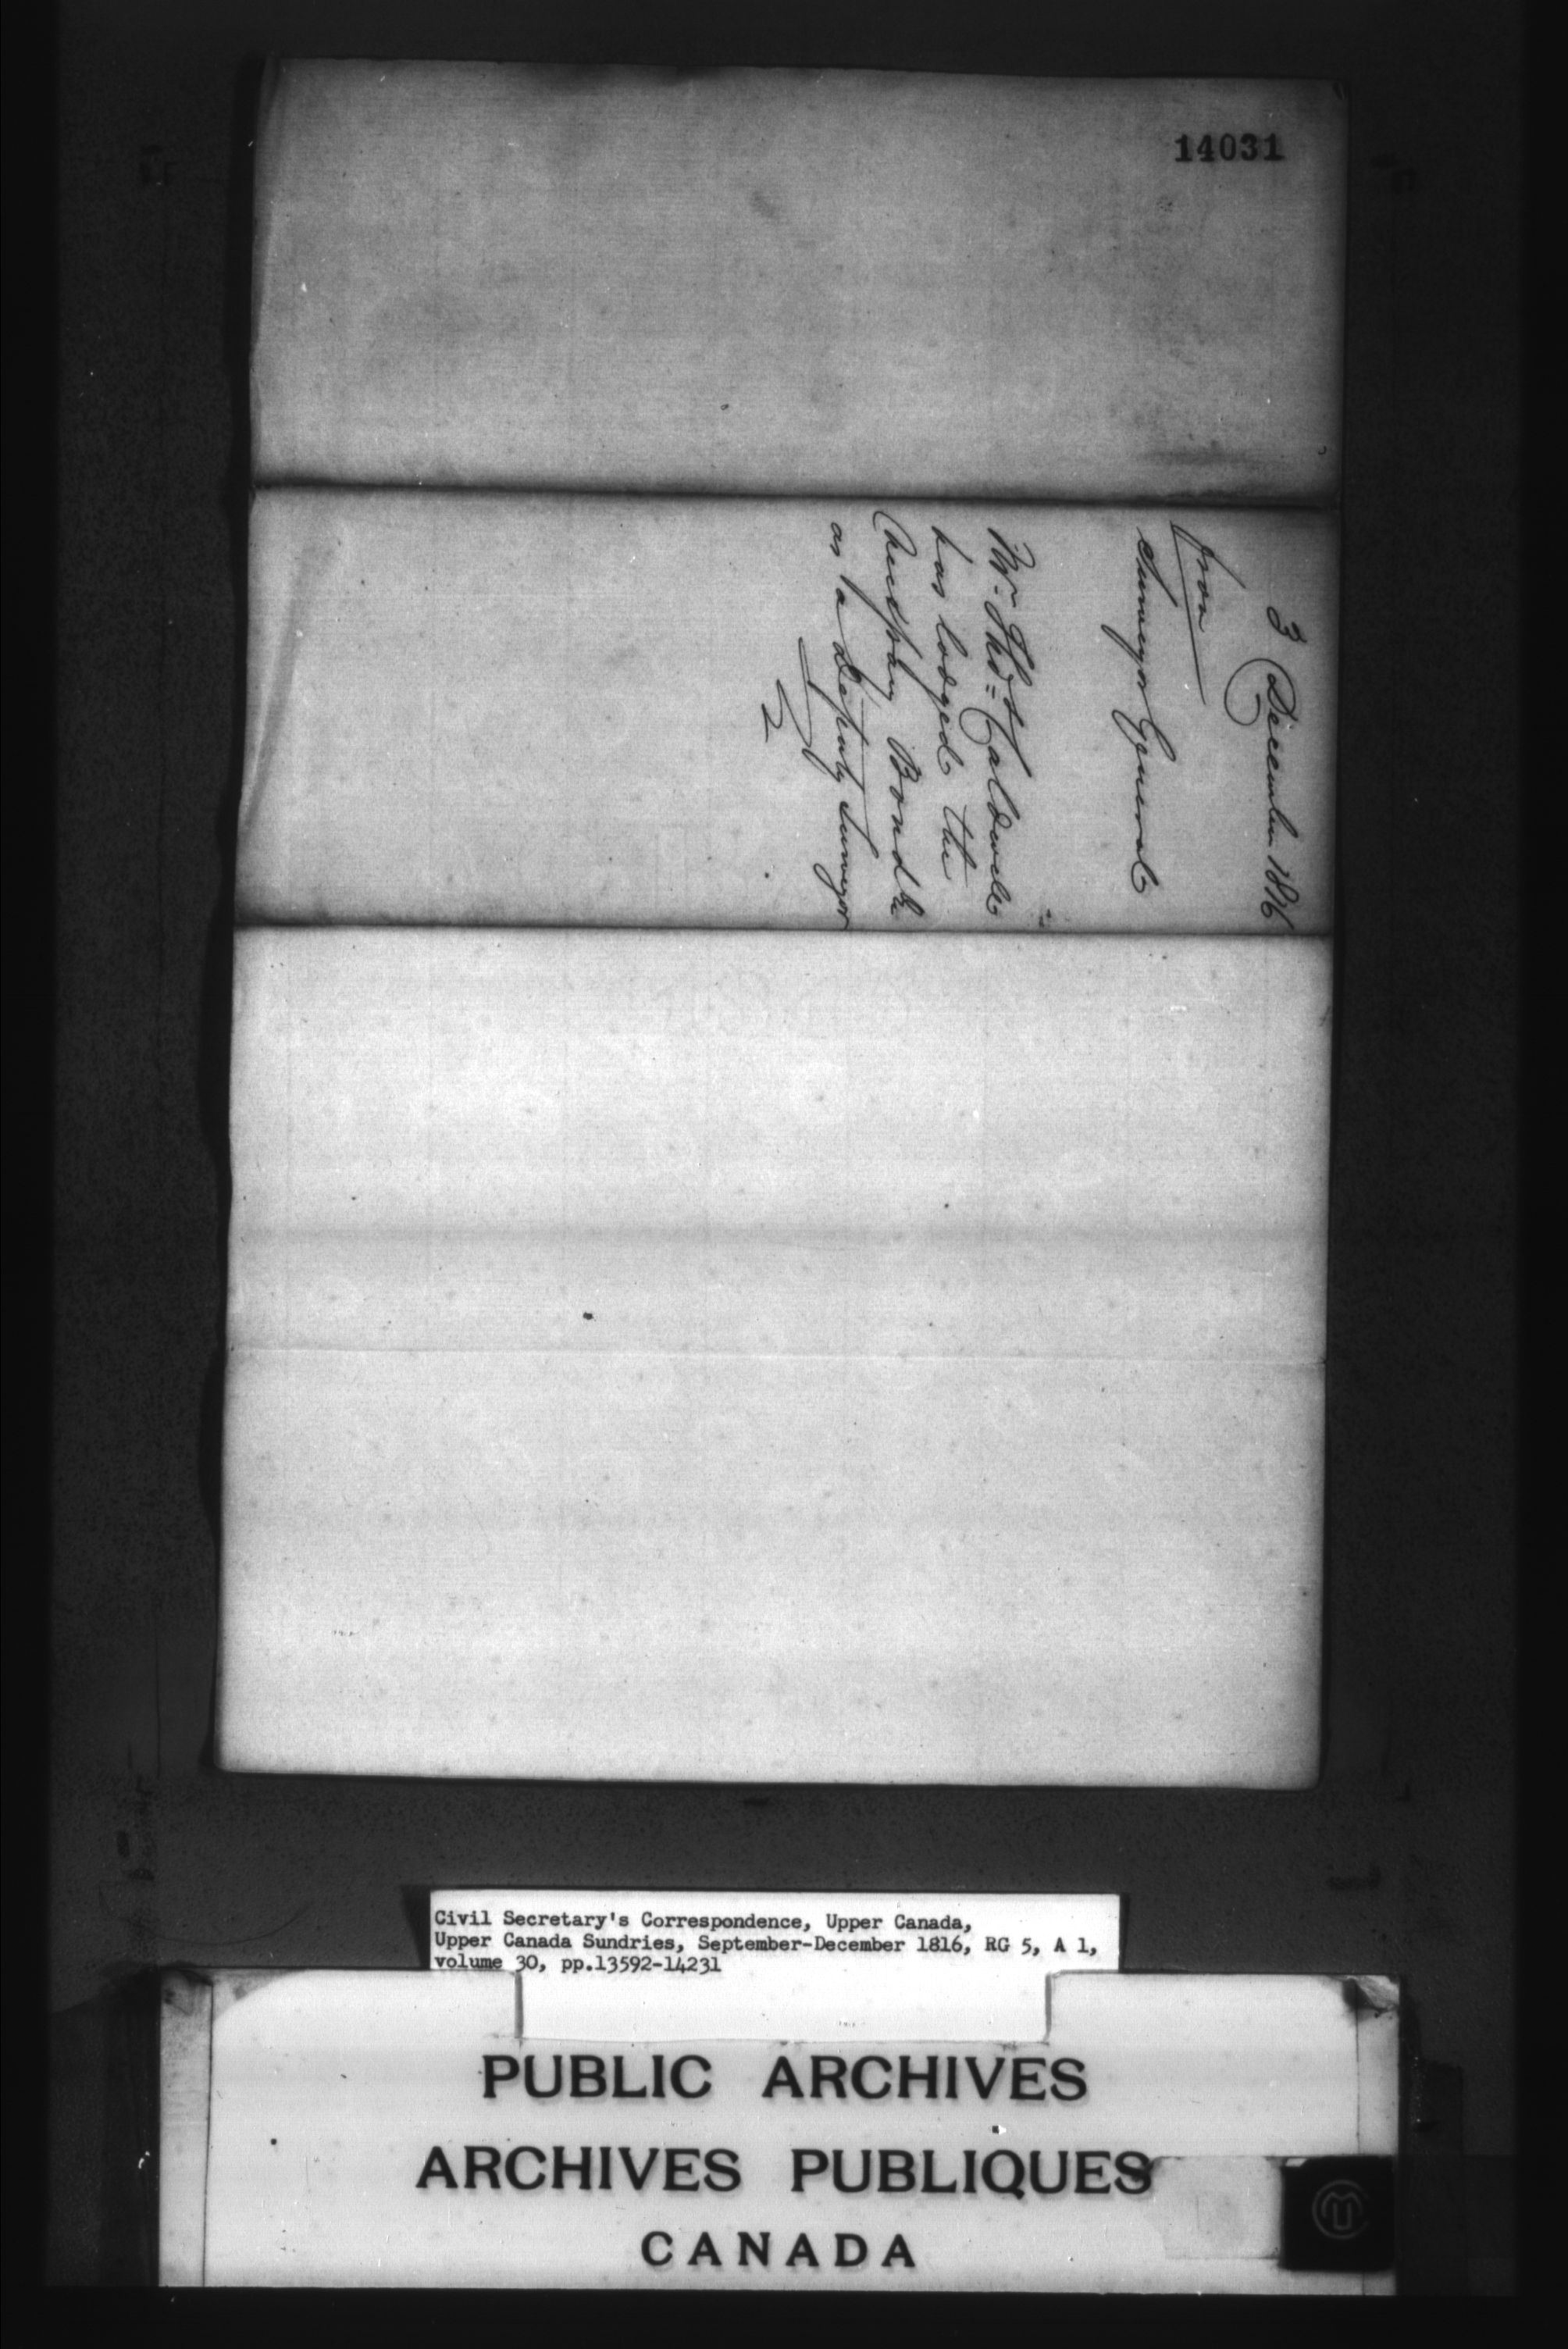 14031
3 December 1816
from
Surveyor General
Mr. Thos= Caldwell
has lodged the
Necessary Bond &c
as a Deputy Surveyor
Civil Secretary's Correspondence, Upper Canada,
Upper Canada Sundries, September-December 1816, RG 5, A 1,
volume 30, pp.13592-14231
PUBLIC ARCHIVES
ARCHIVES PUBLIQUES
CANADA